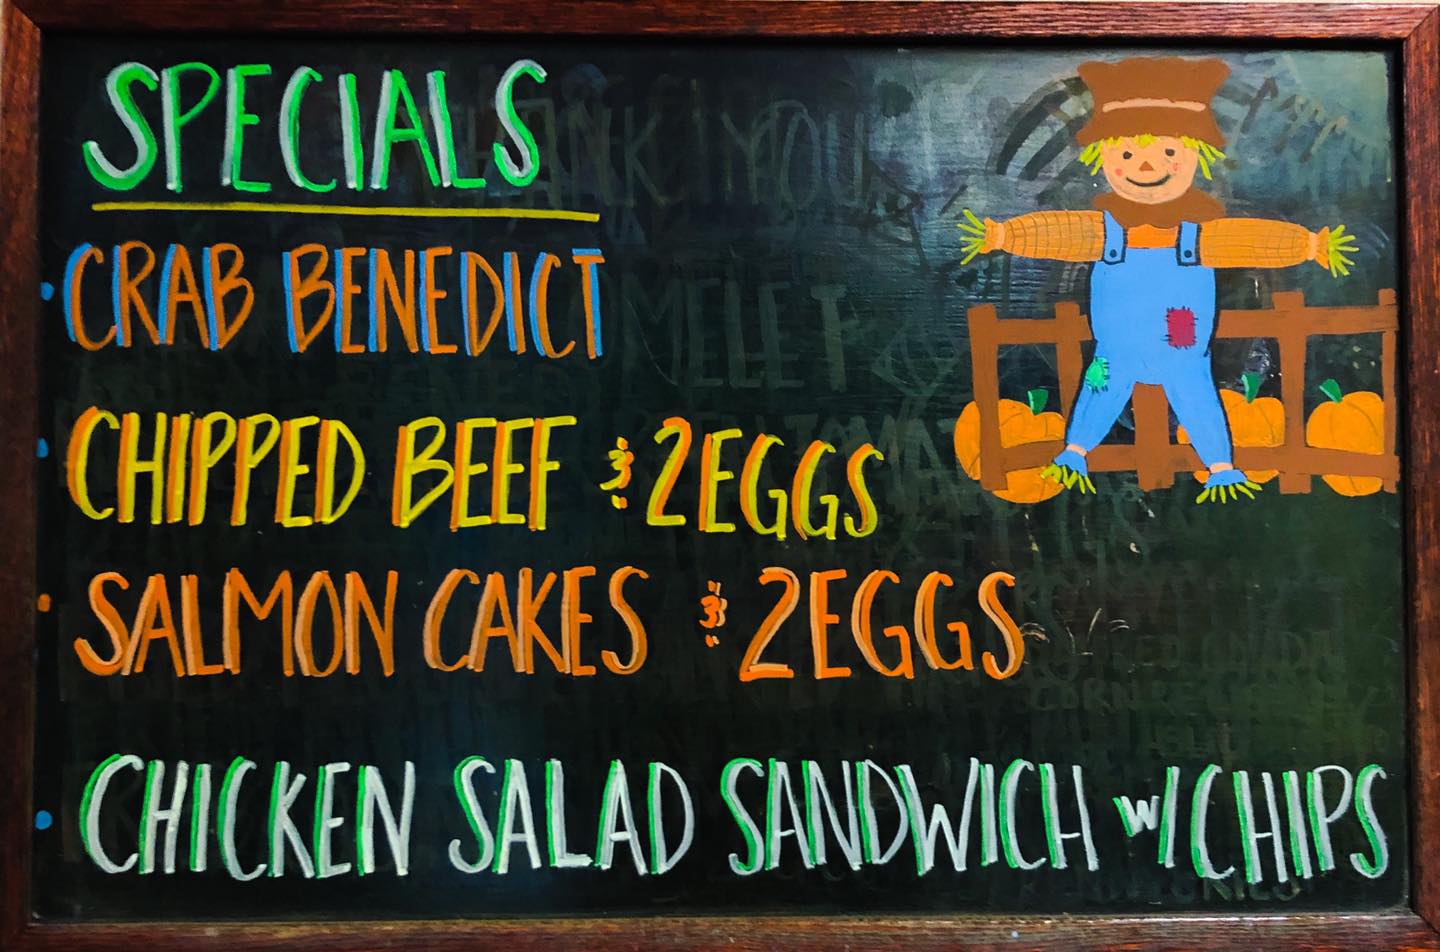 SPECIALS
• CRAB BENEDICT
• CHIPPED BEEF & 2 EGGS
• SALMON CAKES & 2 EGGS
• CHICKEN SALAD SANDWICH w/ CHIPS
THANK YOU